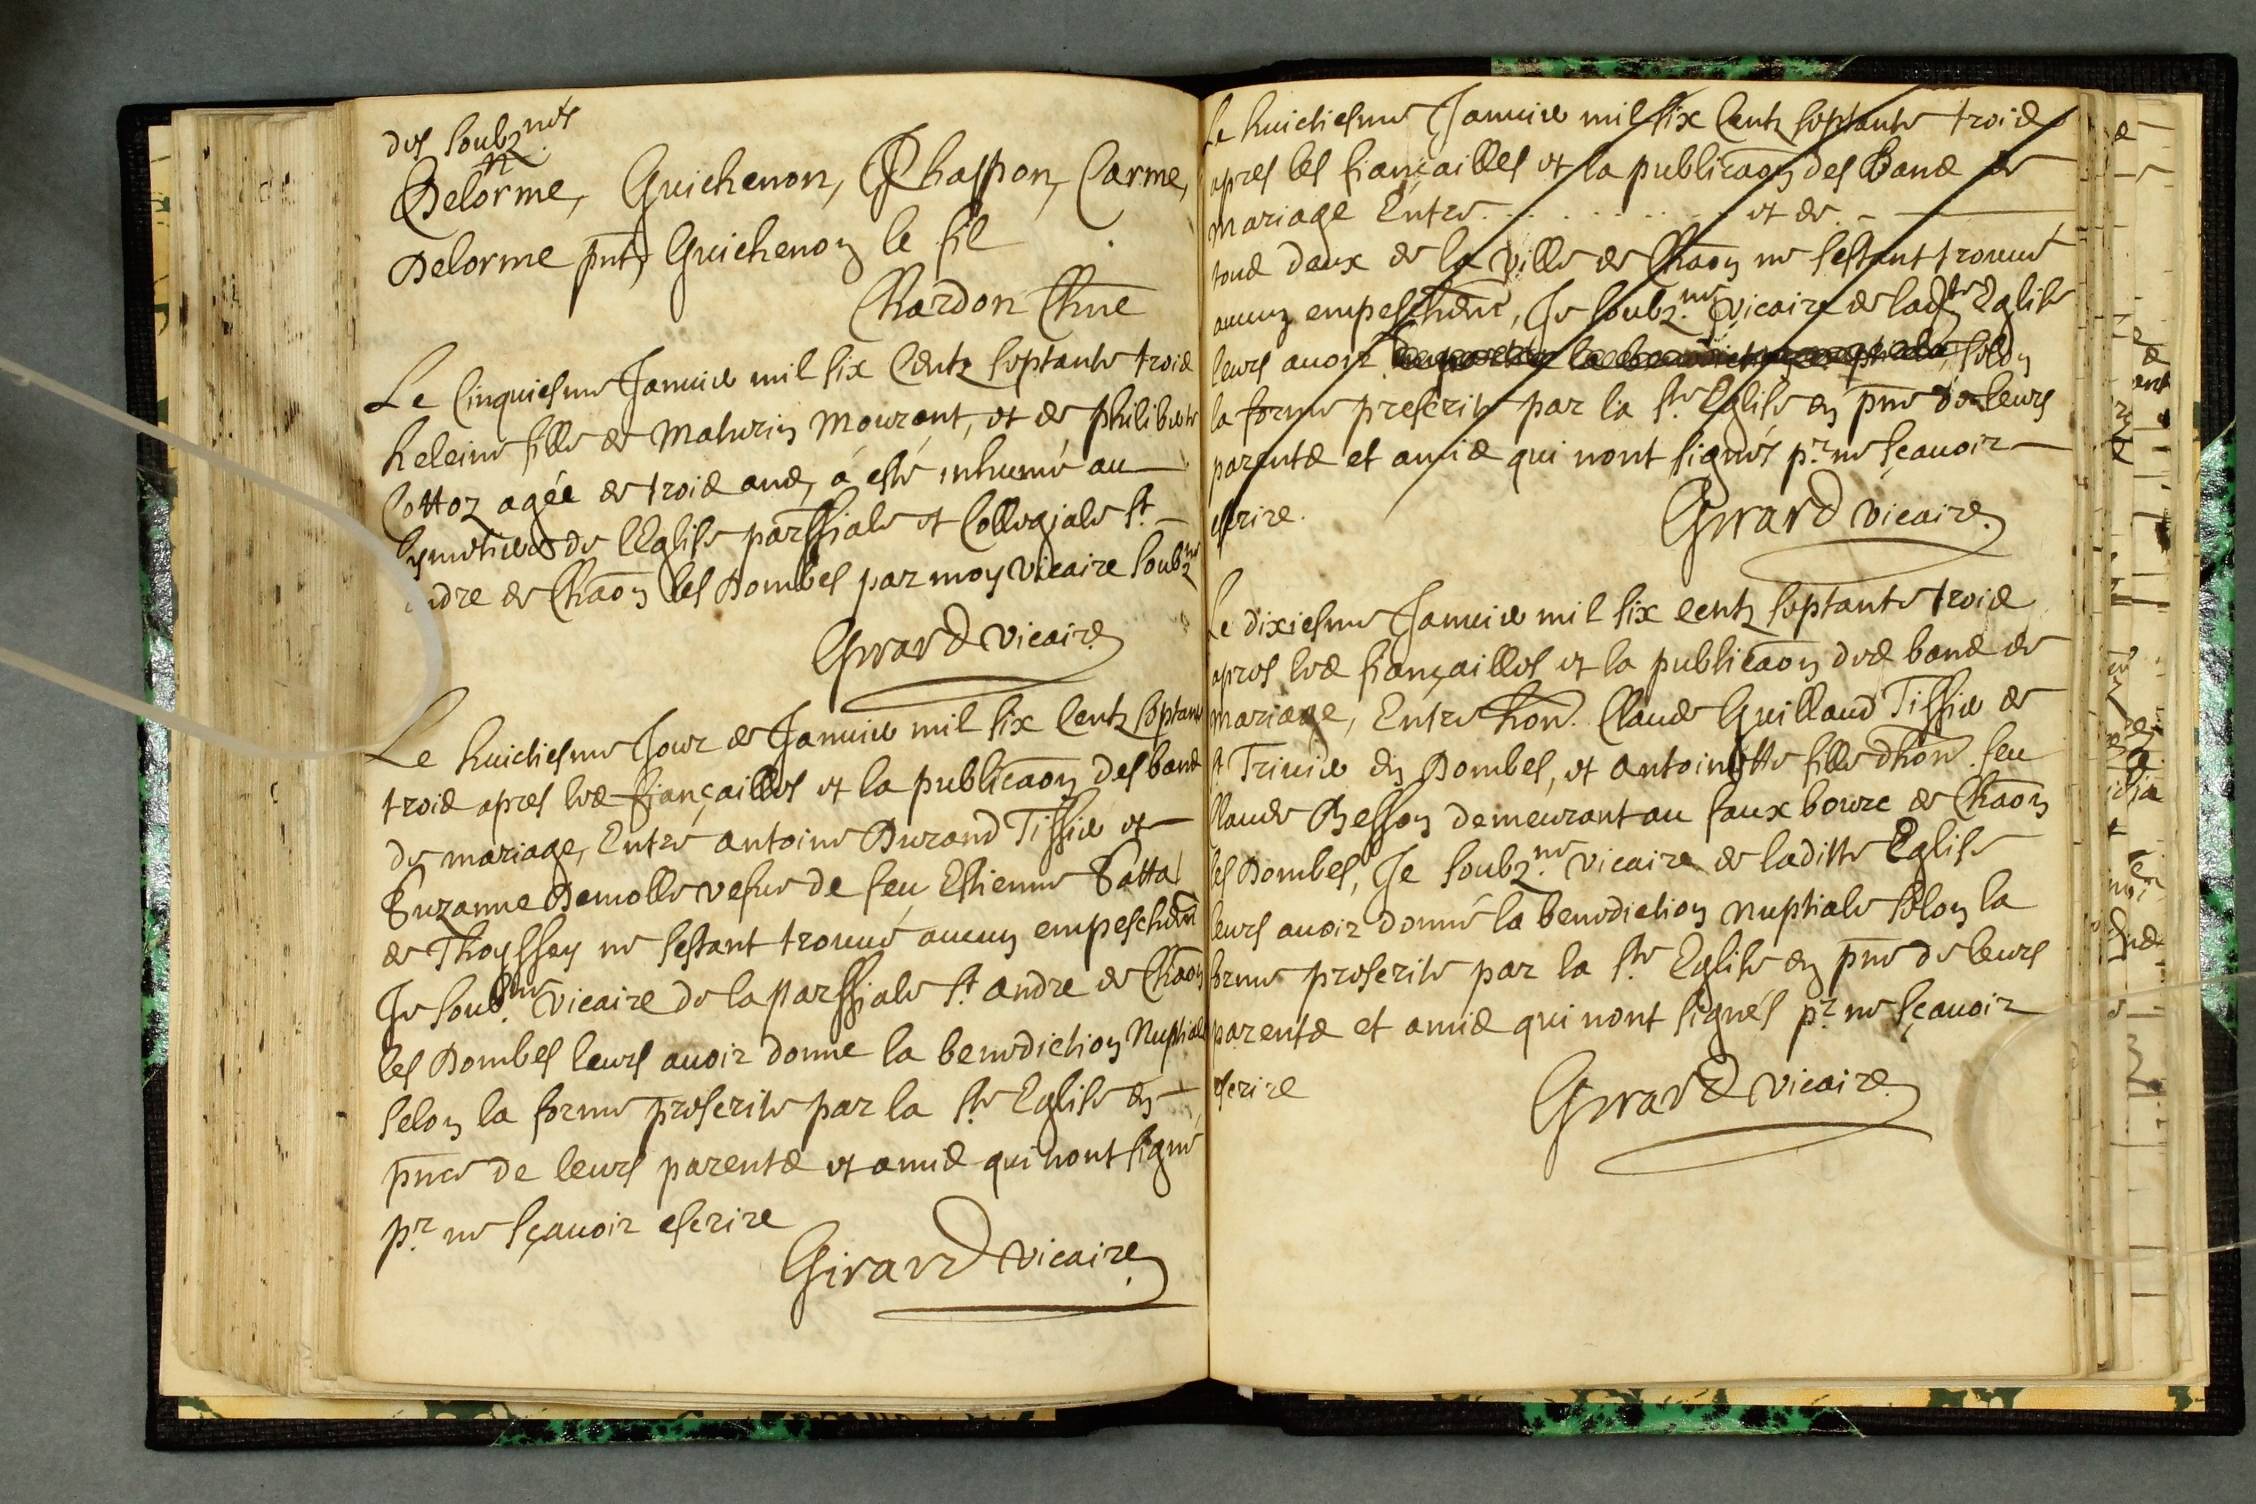 des soubz.nés
Delorme, Guichenon, Chaspon, Carme,
Delorme pnt, Guichenon le fil
Chardon Chne
Le Cinquiesme Januier mil six Centz septante trois
heleine fille de Mathurin Mourant, et de philiberte
Cottoz agée de trois ans, á esté inhumé au
Cymetiere de lEglise parssiale et Collegiale st
andre de Chaõn les Dombes par moy vicaire soubzne
Girard vicaire
Le huictiesme Jour de Januier mil six Centz septante
trois apres les fiançailles et la publicaõn des bans
de mariage, Entre antoine Durand Tissier et
Suzanne Demolle vefue de feu Estienne Satta
de Thoyssey ne sestant trouué aucun empeschemt
Je soubne vicaire de la parssiale st andre de Chaõn
les Dombes leurs auoir donne la benediction Nuptiale
selon la forme prescrite par la ste Eglise en
pnce de leurs parents et amis qui nont signé
pr ne sçauoir escrire
Girard vicaire
Le huictiesme Januier mil six Centz septante trois
apres les fiançailles et la publicaõn des Bans de
mariage Entre . . . . . . . . et de
tous deux de la ville de Chaõn ne sestant trouué
aucun empeschemt, Je soubz.né vicaire de ladte Eglise
leurs auoir selon
la forme prescrite par la ste Eglise en pnce de leurs
parents et amis qui nont signés pr ne sçauoir
escrire.
Girard vicaire
Le dixiesme Januier mil six centz septante trois
apres les fiançailles et la publicaõn des bans de
mariage, Entre hon. Claude Guilland Tissier de
st Triuier en Dombes, et antoinette fille dhon. feu
Claude Besson demeurant au faux bourc de Chaõn
les Dombes, Je soubz.né vicaire de laditte Eglise
leurs auoir donné la benediction nuptiale selon la
forme prescrite par la ste Eglise en pnce de leurs
parents et amis qui nont signés pr ne sçauoir
escrire
Girard vicaire